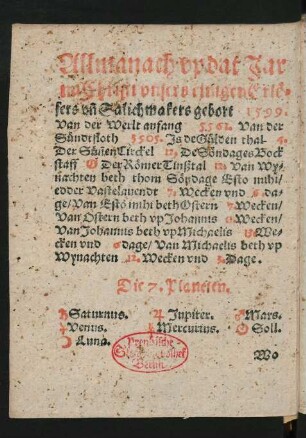 Allmanach vp dat Jar
na Christi vnsers einigen Erlö-
sers vn̄ Salichmakers gebort 1599.
Van der Werlt anfang 5561. Van der
Sündtfloth 3905. Is de Gülden thal 4.
Der Sünnen Circkel 12. De Söndages Bock
staff G Der Römer Tinßtal 12. Van Wy-
nachten beth thom Söndage Esto mihi/
edder Vastelauendt 7. Wecken vnd 6 da-
ge/ Van Esto mihi beth Ostern 7 Wecken/
Van Ostern beth vp Johannis 11 Wecken/
Van Johannis beth vp Michaelis We-
cken vnd 6 dage/ Van Michaelis beth vp
Wynachten 12. Wecken vnd 3. Dage.
Die 7. Planeten.
♄ Saturnus. ♃ Jupiter. ♂ Mars.
♀ Venus. ☿ Mercurius. ☉ Soll.
☽ Luna.
Wo